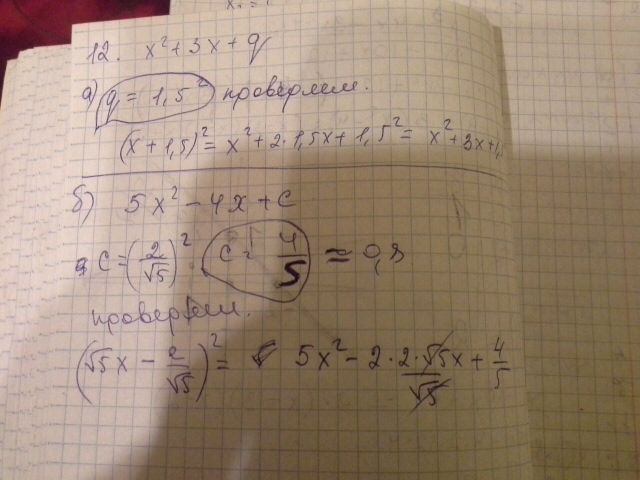 12. x² + 3x + q
а) q = 1,5² проверяем.
(x + 1,5)² = x² + 2·1,5x + 1,5² = x² + 3x +
б) 5x² - 4x + c
c = (2/√5)² c = 4/5 ≈ 0,8
проверяем.
(√5x - 2/√5)² = 5x² - 2·2·√5x/√5 + 4/5